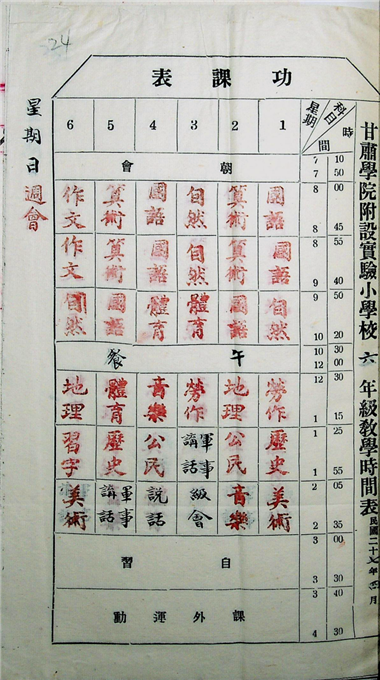 24
甘肅學院附設實驗小學校六年級教學時間表
民國二十七年 月
功課表
時間 科目 星期 1 2 3 4 5 6
7 10 7 50 朝會
8 00 8 45 國語 算術 自然 國語 算術 作文
8 55 9 40 國語 算術 自然 國語 算術 作文
9 50 10 20 自然 國語 體育 體育 國語 自然
10 30 12 00 午餐
12 30 1 15 勞作 地理 勞作 音樂 體育 地理
1 25 1 55 歷史 公民 軍事講話 公民 歷史 習字
2 05 2 35 美術 音樂 級會 說話 軍事講話 美術
3 00 3 30 自習
3 40 4 30 課外運動
星期日週會